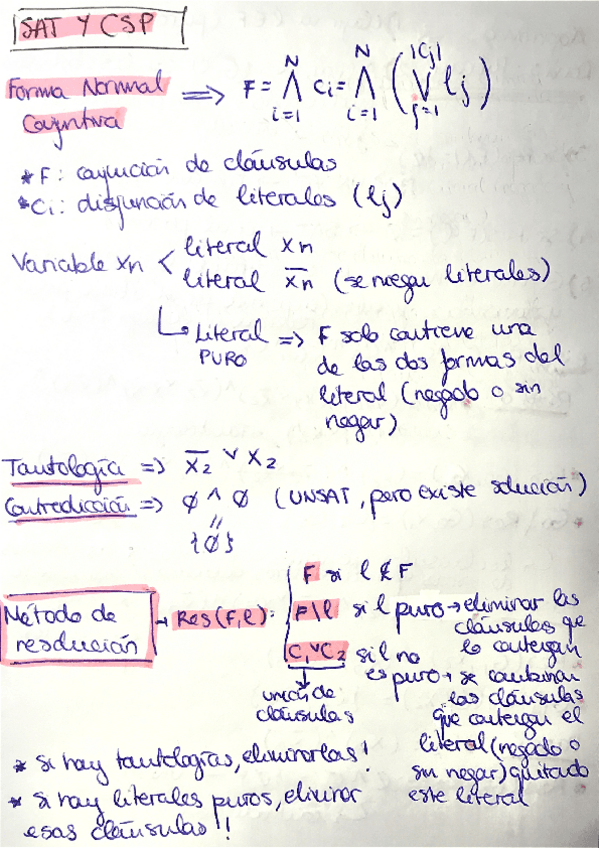 SAT Y CSP
Forma Normal Conjuntiva => F = ⋀_{i=1}^{N} Ci = ⋀_{i=1}^{N} ( ⋁_{j=1}^{|Cj|} lj )
* F: conjunción de cláusulas
* Ci: disjunción de literales (lj)
Variable xn < literal xn
literal x̄n (se niegan literales)
↳ Literal PURO => F solo contiene una
de las dos formas del
literal (negado o sin
negar)
Tautología => x̄2 ∨ x2
Contradicción => ∅ ∧ ∅ (UNSAT, pero existe solución)
"
{∅}
Método de resolución → Res(F, l):
F si l ∉ F
F\l si l puro → eliminar las
cláusulas que
lo contengan
C1 ∨ C2 si l no
es puro → se combinan
las cláusulas
que contengan el
literal (negado o
sin negar) quitado
este literal
unión de
cláusulas
* Si hay tautologías, eliminarlas!
* Si hay literales puros, eliminar
esas cláusulas!!